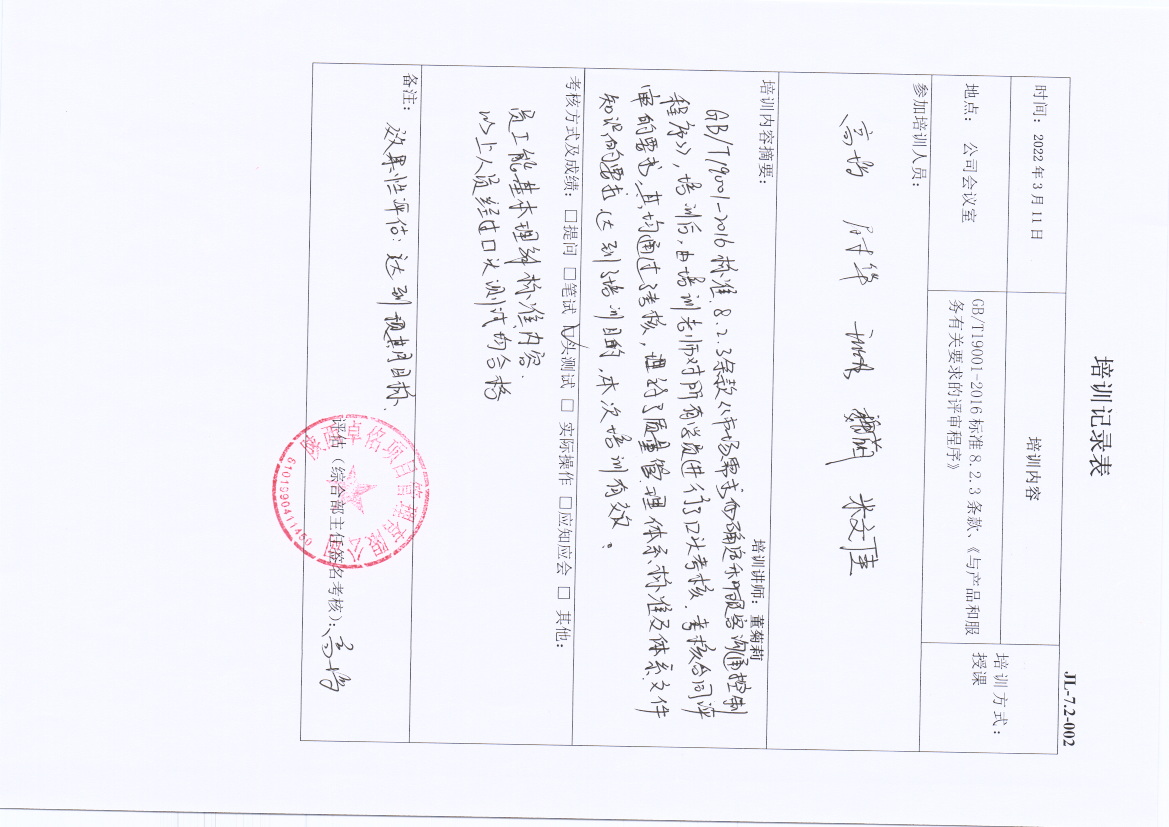 培训记录表
JL-7.2-002
时间： 2022 年 3 月 11 日
培训内容
培训方式：
授课
地点： 公司会议室
GB/T19001-2016 标准 8.2.3 条款、《与产品和服
务有关要求的评审程序》
参加培训人员：
高 米文
培训内容摘要：
培训讲师：董菊莉
GB/T19001-2016标准8.2.3条款《市场需求的确定和顾客沟通控制
程序》，培训后，由培训老师对所有学员进行了口头考核．考核合同评
审的要求，其均通过了考核，理符了质量管理体系标准及体系文件
知识的要求 达到了培训目的，本次培训有效。
考核方式及成绩： □提问 □笔试 ☑口头测试 □ 实际操作 □应知应会 □ 其他：
员工能基本理解标准内容．
以上人员经过口头测试均合格
备注： 效果性评估：达到预期目标．
评估（综合部主任签名考核）：高
陕西卓佲项目管理有限公司
6101990411450